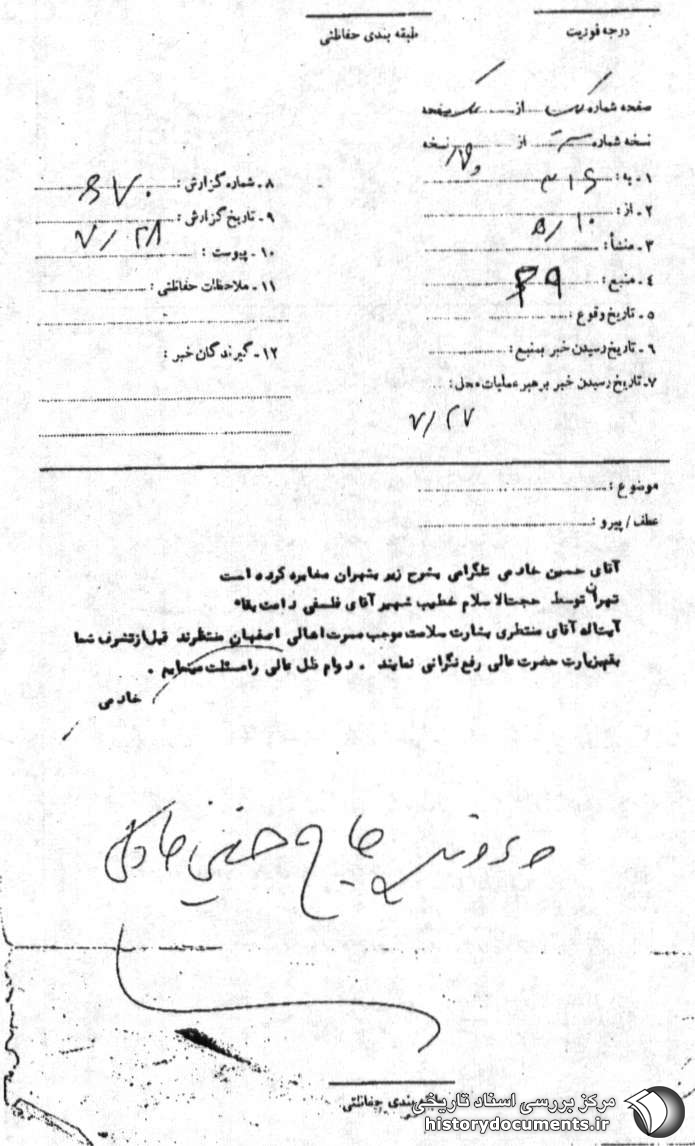 درجه فوریت
طبقه بندی حفاظتی
صفحه شماره یک از یک صفحه
نسخه شماره از نسخه
۱ـ به: ۳۱۶
۲ـ از: ۱۰/ﻫ
۳ـ منشأ:
۴ـ منبع:
۵ـ تاریخ وقوع:
۶ـ تاریخ رسیدن خبر بمنبع:
۷ـ تاریخ رسیدن خبر برهبر عملیات محل:
۷/۲۷
۸ـ شماره گزارش: ۶۷۰
۹ـ تاریخ گزارش: ۷/۲۸
۱۰ـ پیوست:
۱۱ـ ملاحظات حفاظتی:
۱۲ـ گیرندگان خبر:
موضوع:
عطف/پیرو:
آقای حسین خادمی تلگرامی بشرح زیر بتهران مخابره کرده است
تهران توسط حجتالاسلام خطیب شهیر آقای فلسفی دامت بقاه
آیتاله آقای منتظری بشارت سلامت موجب مسرت اهالی اصفهان منتظرند قبل از تشرف شما
بقم زیارت حضرت عالی رفع نگرانی نمایند . دوام ظل عالی را مسئلت مینمایم .
خادمی
طبقه بندی حفاظتی
مرکز بررسی اسناد تاریخی
historydocuments.ir